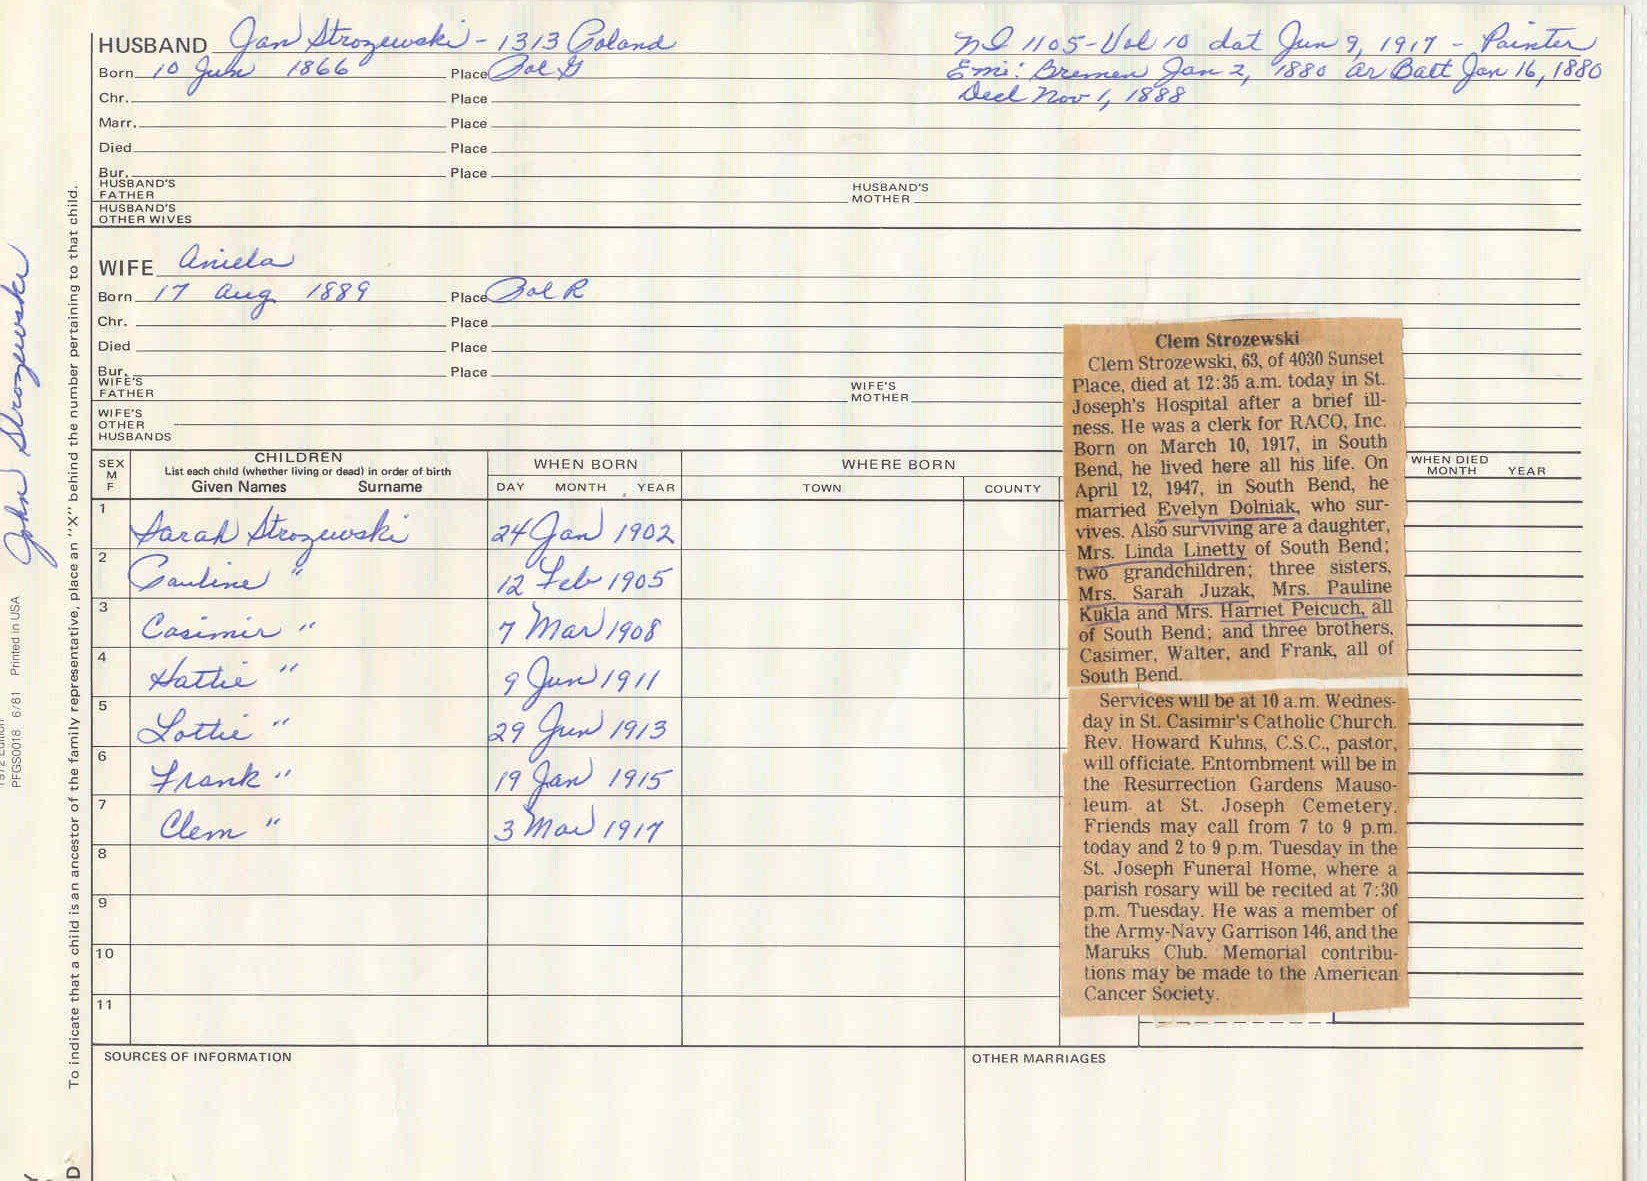 HUSBAND Jan Strozewski - 1313 Poland
NI 1105 - Vol 10 dat Jun 9, 1917 - Painter
Born 10 Jun 1866 Place Pol G
Emi: Bremen Jan 2, 1880 ar Balt Jan 16, 1880
Decl Nov 1, 1888
Chr. Place
Marr. Place
Died Place
Bur. Place
HUSBAND'S FATHER HUSBAND'S MOTHER
HUSBAND'S OTHER WIVES
WIFE Aniela
Born 17 Aug 1889 Place Pol R
Chr. Place
Died Place
Bur. Place
WIFE'S FATHER WIFE'S MOTHER
WIFE'S OTHER HUSBANDS
SEX M F
CHILDREN
List each child (whether living or dead) in order of birth
Given Names Surname
WHEN BORN
DAY MONTH YEAR
WHERE BORN
TOWN COUNTY
WHEN DIED
MONTH YEAR
1 Sarah Strozewski 24 Jan 1902
2 Pauline " 12 Feb 1905
3 Casimir " 7 Mar 1908
4 Hattie " 9 Jun 1911
5 Lottie " 29 Jun 1913
6 Frank " 19 Jan 1915
7 Clem " 3 Mar 1917
8
9
10
11
SOURCES OF INFORMATION
OTHER MARRIAGES
Clem Strozewski
Clem Strozewski, 63, of 4030 Sunset
Place, died at 12:35 a.m. today in St.
Joseph's Hospital after a brief ill-
ness. He was a clerk for RACO, Inc.
Born on March 10, 1917, in South
Bend, he lived here all his life. On
April 12, 1947, in South Bend, he
married Evelyn Dolniak, who sur-
vives. Also surviving are a daughter,
Mrs. Linda Linetty of South Bend;
two grandchildren; three sisters,
Mrs. Sarah Juzak, Mrs. Pauline
Kukla and Mrs. Harriet Peicuch, all
of South Bend; and three brothers,
Casimer, Walter, and Frank, all of
South Bend.
Services will be at 10 a.m. Wednes-
day in St. Casimir's Catholic Church.
Rev. Howard Kuhns, C.S.C., pastor,
will officiate. Entombment will be in
the Resurrection Gardens Mauso-
leum at St. Joseph Cemetery.
Friends may call from 7 to 9 p.m.
today and 2 to 9 p.m. Tuesday in the
St. Joseph Funeral Home, where a
parish rosary will be recited at 7:30
p.m. Tuesday. He was a member of
the Army-Navy Garrison 146, and the
Maruks Club. Memorial contribu-
tions may be made to the American
Cancer Society.
John Strozewski
To indicate that a child is an ancestor of the family representative, place an "X" behind the number pertaining to that child.
PFGS0018 6/81 Printed in USA